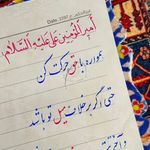 Date:
امیرالمؤمنین علی علیه السلام
همواره با حق حرکت کن
حتی اگر برخلاف میل تو باشد